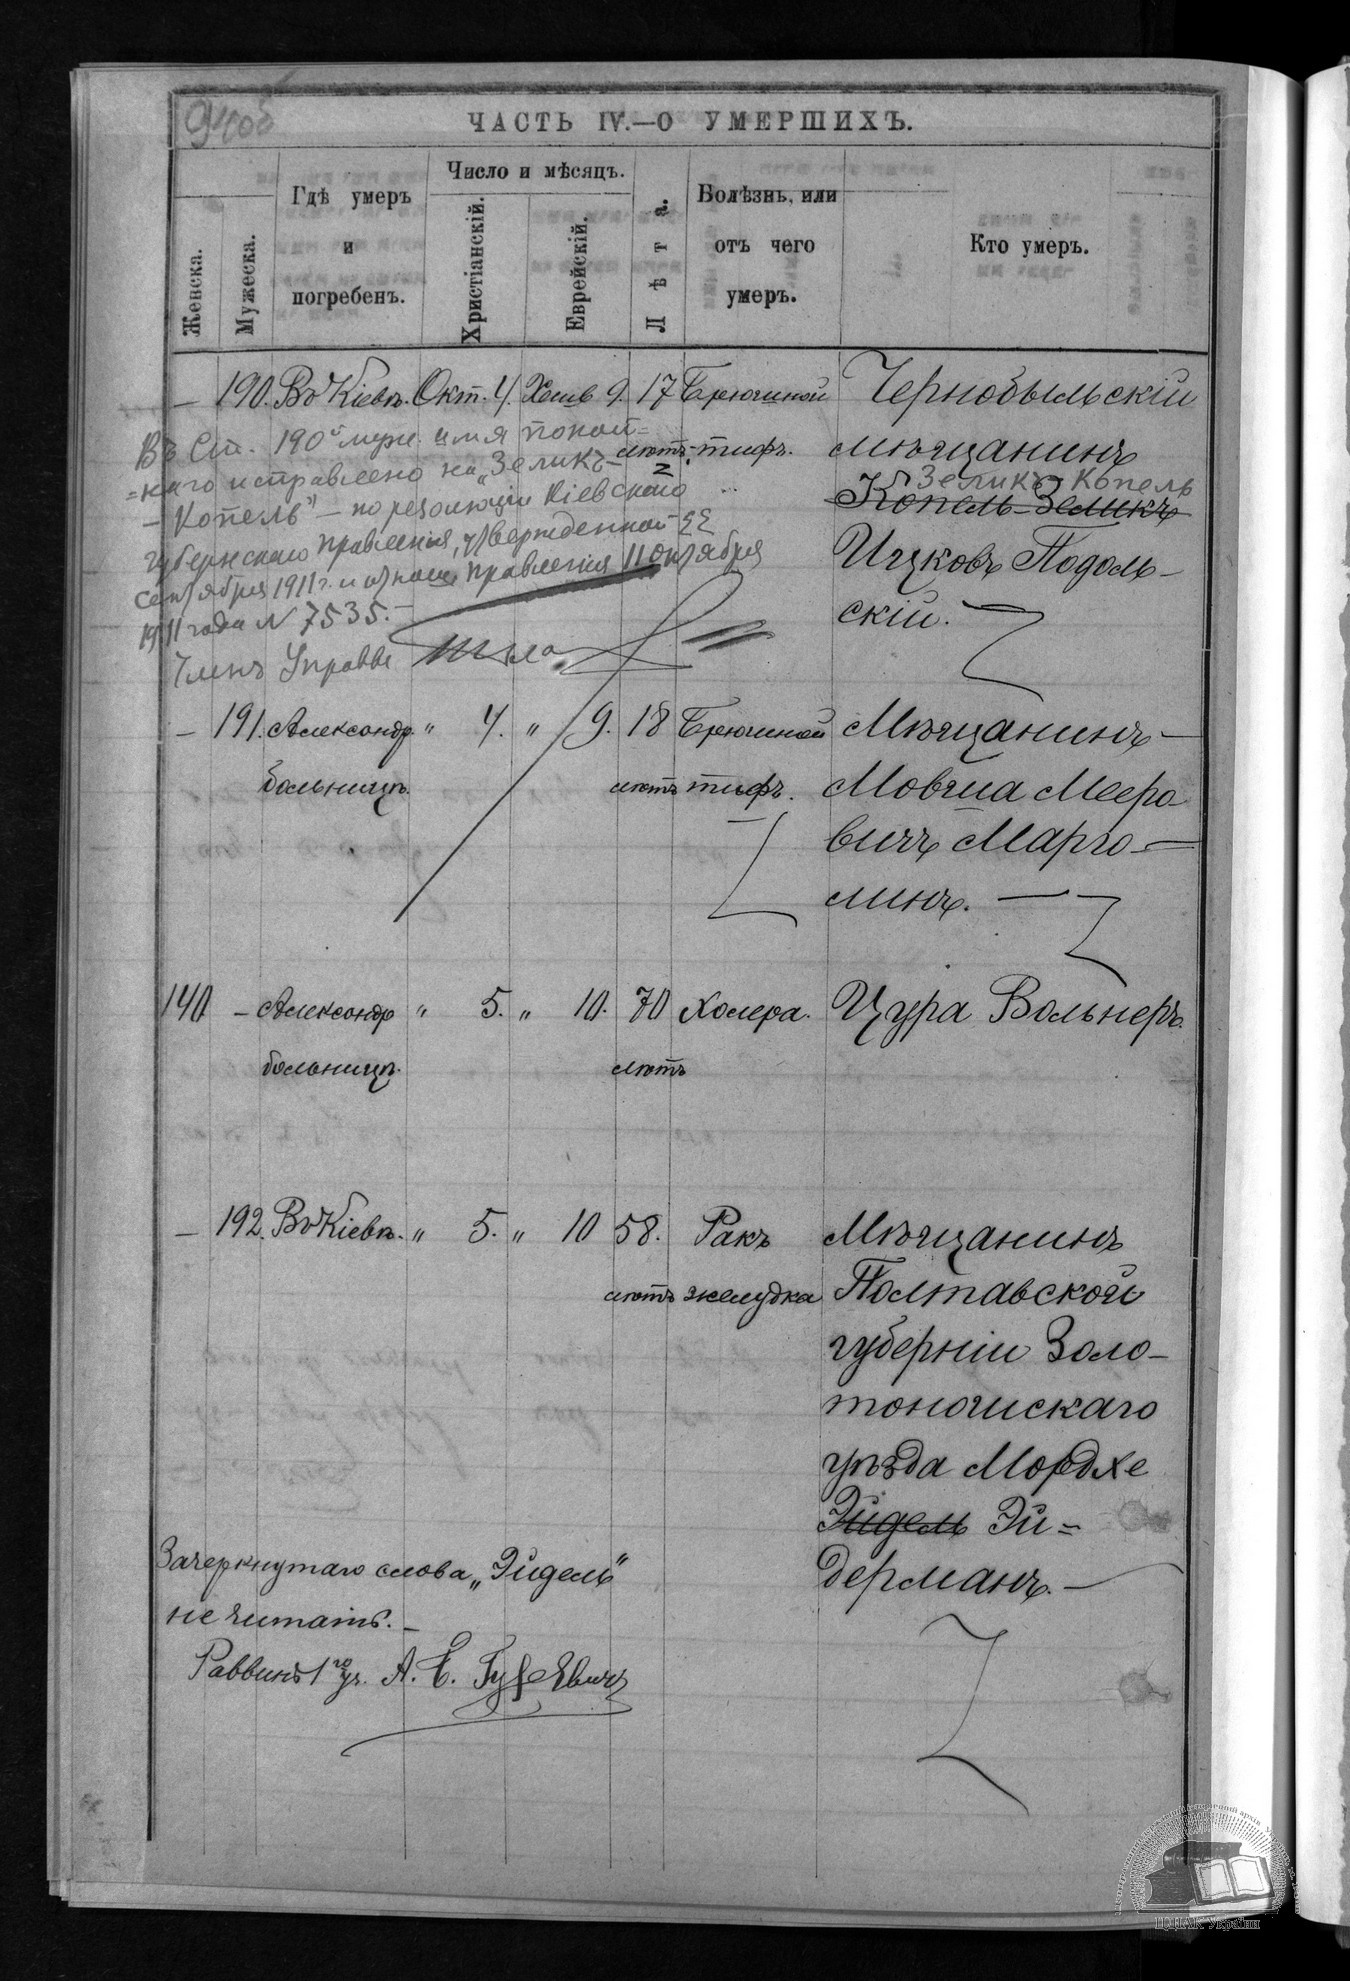 94об
ЧАСТЬ IV.—О УМЕРШИХЪ.
Женска.
Мужеска.
Гдѣ умеръ
и
погребенъ.
Число и мѣсяцъ.
Христіанскій.
Еврейскій.
Лѣта.
Болѣзнь, или
отъ чего
умеръ.
Кто умеръ.
— 190. Въ Кіевѣ. Окт. 4. Хешв 9. 17 Брюшной Чернобыльскій
лѣтъ. тифъ. мѣщанинъ
Зеликъ-Копель
Копель-Зеликъ
Ицковъ Подоль-
скій.
Въ Ст. 190й муж. имя покой=
=наго исправлено на „Зеликъ-
-Копель" - по резолюціи Кіевскаго
Губернскаго Правленія, утвержденной
сентября 1911 г. и Правленія 11 октября
1911 года N 7535.—
Членъ Управы
— 191. Александр. " 4. " 9. 18 Брюшной Мѣщанинъ —
больницѣ. лѣтъ тифъ. Мовша Мееро
вичъ Марго —
линъ. —
140 — Александр " 5. " 10. 70 Холера. Цура Вольнеръ.
больницѣ. лѣтъ
— 192. Въ Кіевѣ. " 5. " 10 58. Ракъ Мѣщанинъ
лѣтъ желудка Полтавской
губерніи Золо-
тоношскаго
уѣзда Мордхе
Эйдель Эй=
дерманъ. —
Зачеркнутаго слова „Эйдель"
не читать. —
Раввинъ 1го уч. А. Б. Гуревичъ
ЦДІАК України